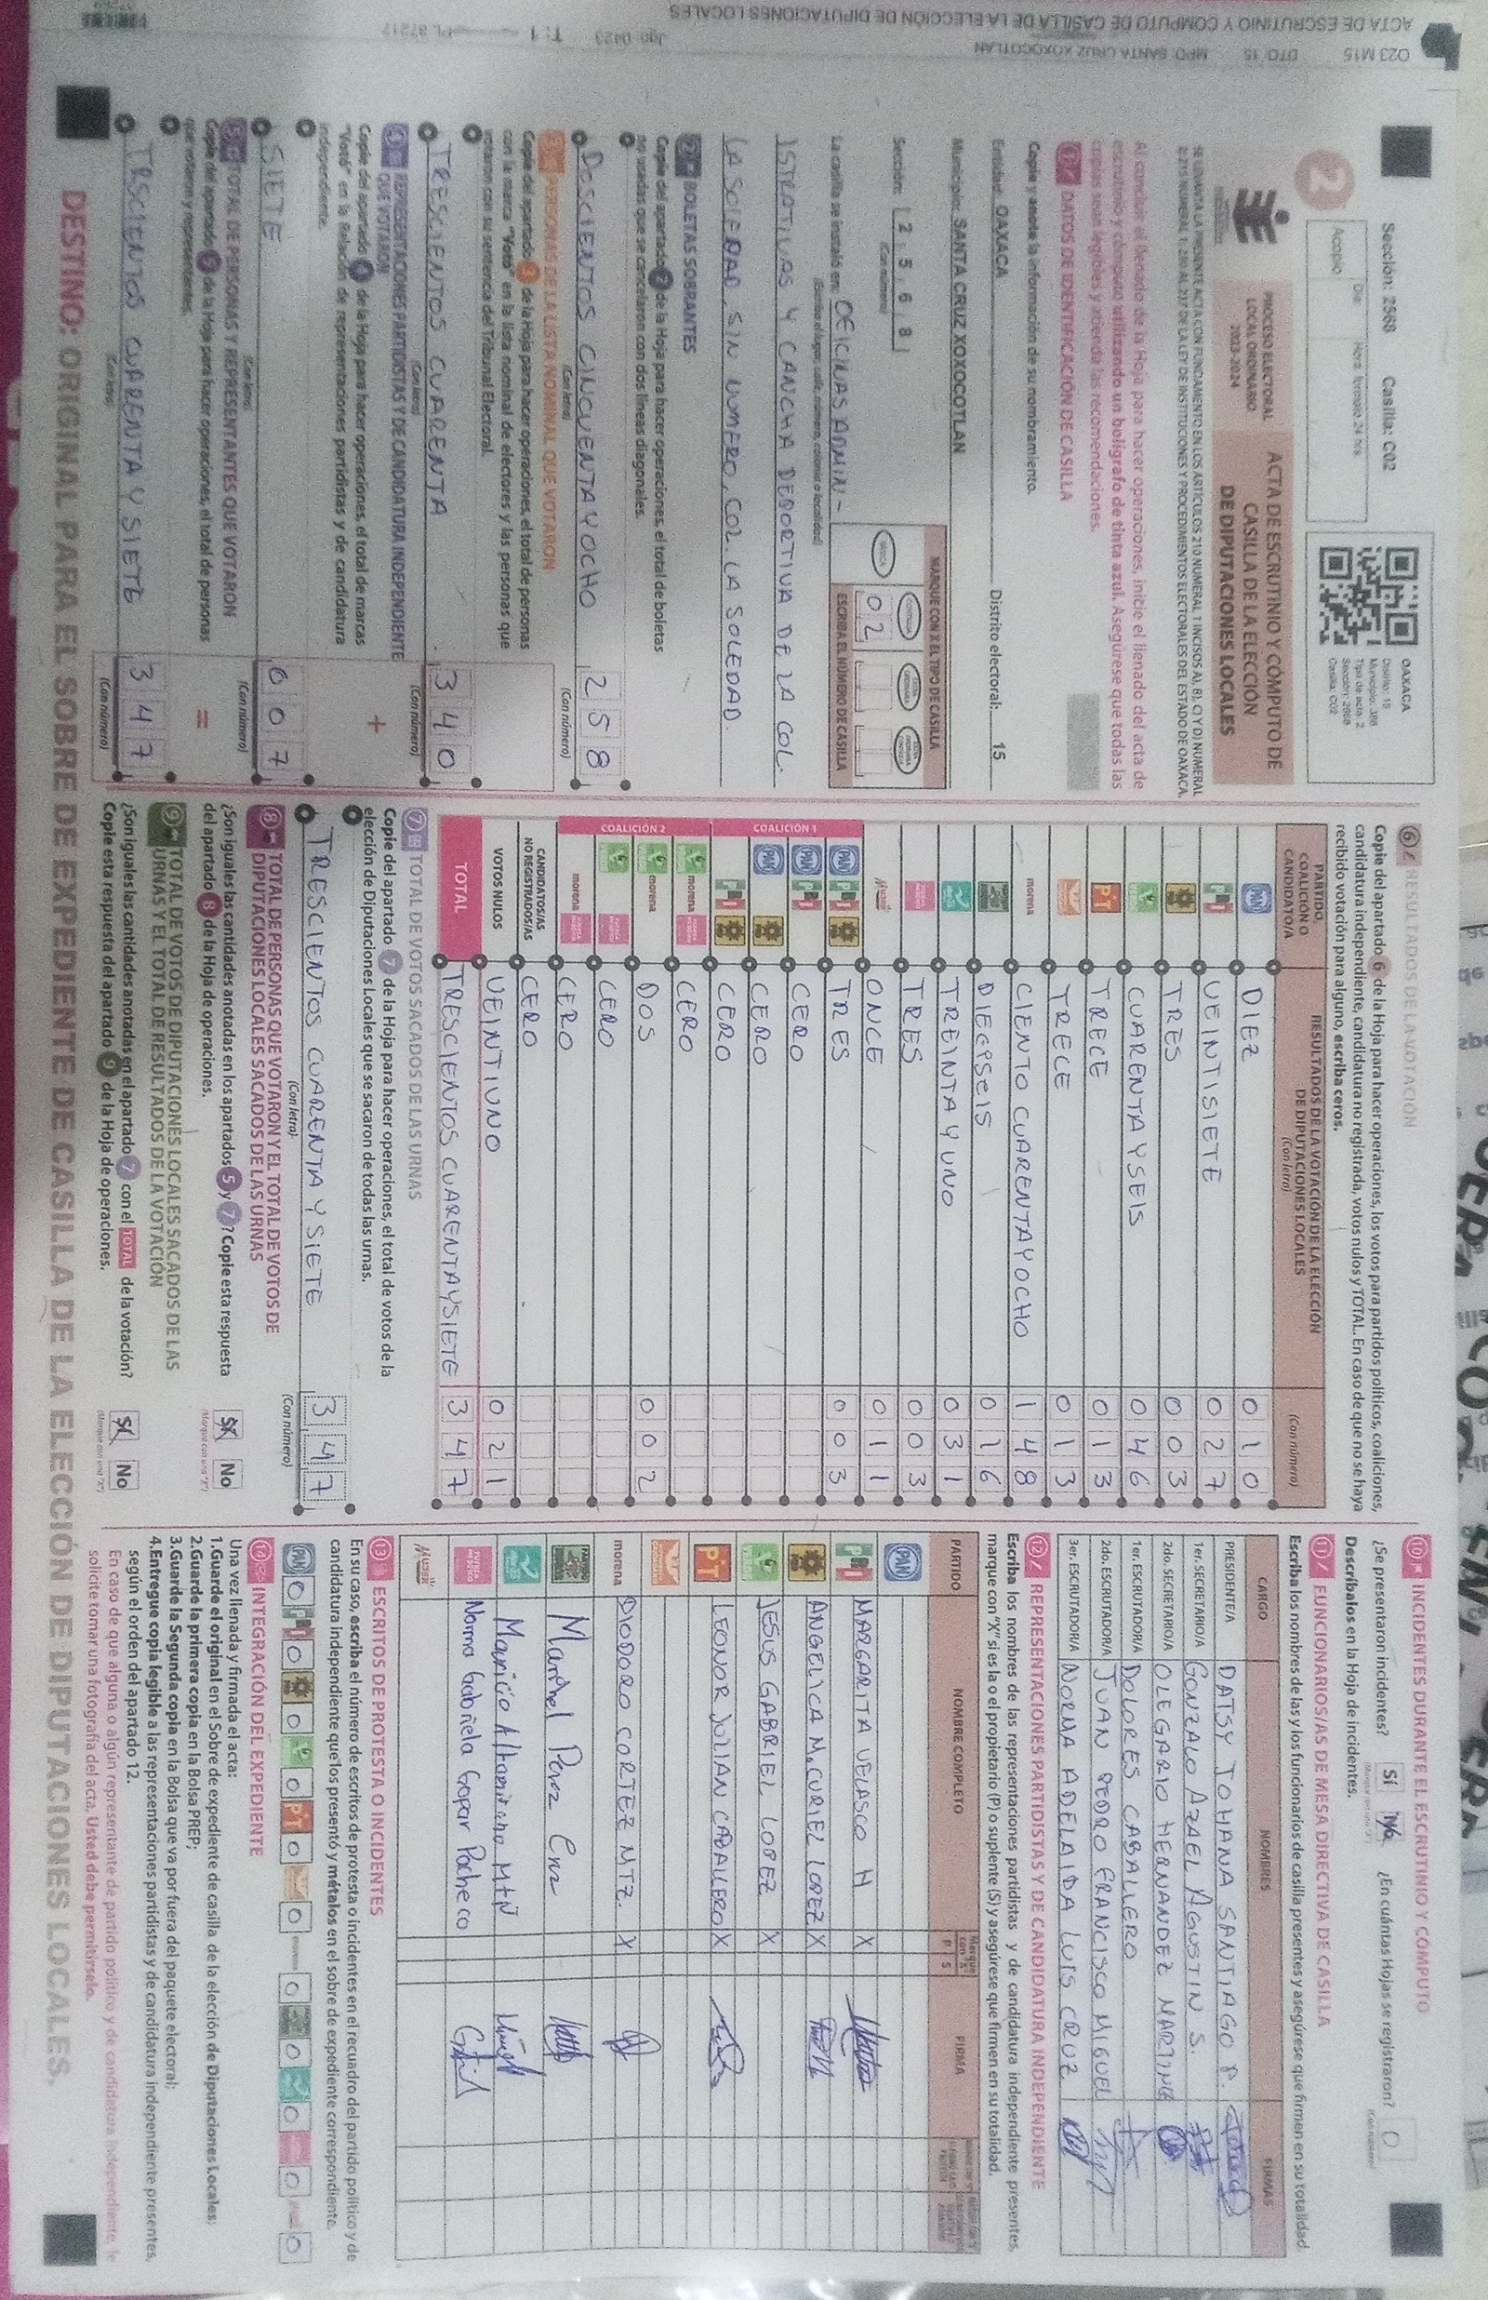 Sección: 2568 Casilla: C02
Día Hora: formato 24 hrs
Acopio
OAXACA
Distrito: 15
Tipo de acta: 2
Sección: 2568
Casilla: C02
2
PROCESO ELECTORAL
LOCAL ORDINARIO
2023-2024
ACTA DE ESCRUTINIO Y CÓMPUTO DE
CASILLA DE LA ELECCIÓN
DE DIPUTACIONES LOCALES
Al concluir el llenado de la Hoja para hacer operaciones, inicie el llenado del acta de
escrutinio y cómputo utilizando un bolígrafo de tinta azul. Asegúrese que todas las
copias sean legibles y atienda las recomendaciones.
1 DATOS DE IDENTIFICACIÓN DE CASILLA
Copie y anote la información de su nombramiento.
Entidad: OAXACA Distrito electoral: 15
Municipio: SANTA CRUZ XOXOCOTLAN
Sección: 2 5 6 8
(Con número)
MARQUE CON X EL TIPO DE CASILLA
02
ESCRIBA EL NÚMERO DE CASILLA
La casilla se instaló en: OFICINAS ADMINI-
(Escriba el lugar, calle, número, colonia o localidad)
ISTRATIVAS Y CANCHA DEPORTIVA DE LA COL.
LA SOLEDAD, SIN NUMERO, COL. LA SOLEDAD.
2 BOLETAS SOBRANTES
Copie del apartado 2 de la Hoja para hacer operaciones, el total de boletas
no usadas que se cancelaron con dos líneas diagonales.
DOSCIENTOS CINCUENTA Y OCHO 258
(Con letra) (Con número)
3 PERSONAS DE LA LISTA NOMINAL QUE VOTARON
Copie del apartado 3 de la Hoja para hacer operaciones, el total de personas
con la marca "Votó" en la lista nominal de electores y las personas que
votaron con su sentencia del Tribunal Electoral.
TRESCIENTOS CUARENTA 340
(Con letra) (Con número)
4 REPRESENTACIONES PARTIDISTAS Y DE CANDIDATURA INDEPENDIENTE
QUE VOTARON
Copie del apartado 4 de la Hoja para hacer operaciones, el total de marcas
"Votó" en la Relación de representaciones partidistas y de candidatura
independiente.
+
SIETE 007
(Con letra) (Con número)
5 TOTAL DE PERSONAS Y REPRESENTANTES QUE VOTARON
Copie del apartado 5 de la Hoja para hacer operaciones, el total de personas
que votaron y representantes.
=
TRSCIENTOS CUARENTA Y SIETE 347
(Con letra) (Con número)
6 RESULTADOS DE LA VOTACIÓN
Copie del apartado 6 de la Hoja para hacer operaciones, los votos para partidos políticos, coaliciones,
candidatura independiente, candidatura no registrada, votos nulos y TOTAL. En caso de que no se haya
recibido votación para alguno, escriba ceros.
PARTIDO, COALICIÓN O CANDIDATO/A
RESULTADOS DE LA VOTACIÓN DE LA ELECCIÓN
DE DIPUTACIONES LOCALES
(Con letra) (Con número)
PAN DIEZ 010
PRI VEINTISIETE 027
TRES 003
CUARENTA Y SEIS 046
PT TRECE 013
TRECE 013
morena CIENTO CUARENTA Y OCHO 148
DIECPSEIS 016
TREINTA Y UNO 031
TRES 003
MUJER ONCE 011
COALICIÓN 1
PAN PRI TRES 003
PAN PRI CERO
PAN CERO
PRI CERO
COALICIÓN 2
morena CERO
morena DOS 002
CERO
morena CERO
CANDIDATOS/AS NO REGISTRADOS/AS CERO
VOTOS NULOS VEINTIUNO 021
TOTAL TRESCIENTOS CUARENTA Y SIETE 347
7 TOTAL DE VOTOS SACADOS DE LAS URNAS
Copie del apartado 7 de la Hoja para hacer operaciones, el total de votos de la
elección de Diputaciones Locales que se sacaron de todas las urnas.
TRESCIENTOS CUARENTA Y SIETE 347
(Con letra) (Con número)
8 TOTAL DE PERSONAS QUE VOTARON Y EL TOTAL DE VOTOS DE
DIPUTACIONES LOCALES SACADOS DE LAS URNAS
¿Son iguales las cantidades anotadas en los apartados 5 y 7? Copie esta respuesta
del apartado 8 de la Hoja de operaciones.
Sí No
9 TOTAL DE VOTOS DE DIPUTACIONES LOCALES SACADOS DE LAS
URNAS Y EL TOTAL DE RESULTADOS DE LA VOTACIÓN
¿Son iguales las cantidades anotadas en el apartado 7 con el TOTAL de la votación?
Copie esta respuesta del apartado 9 de la Hoja de operaciones.
Sí No
10 INCIDENTES DURANTE EL ESCRUTINIO Y CÓMPUTO
¿Se presentaron incidentes? Sí No ¿En cuántas Hojas se registraron? 0
Descríbalos en la Hoja de incidentes.
11 FUNCIONARIOS/AS DE MESA DIRECTIVA DE CASILLA
Escriba los nombres de las y los funcionarios de casilla presentes y asegúrese que firmen en su totalidad
CARGO NOMBRES FIRMAS
PRESIDENTE/A DATSY JOHANA SANTIAGO P.
1er. SECRETARIO/A GONZALO AZAEL AGUSTIN S.
2do. SECRETARIO/A OLEGARIO HERNANDEZ MARTINE
1er. ESCRUTADOR/A DOLORES CABALLERO
2do. ESCRUTADOR/A JUAN PEDRO FRANCISCO MIGUEL
3er. ESCRUTADOR/A NORMA ADELAIDA LUIS CRUZ
12 REPRESENTACIONES PARTIDISTAS Y DE CANDIDATURA INDEPENDIENTE
Escriba los nombres de las representaciones partidistas y de candidatura independiente presentes,
marque con "X" si es la o el propietario (P) o suplente (S) y asegúrese que firmen en su totalidad.
PARTIDO NOMBRE COMPLETO P S FIRMA
PAN
PRI MARGARITA VELASCO H X
ANGELICA M. CURIEL LOPEZ X
JESUS GABRIEL LOPEZ X
PT LEONOR JULIAN CABALLERO X
morena DIODORO CORTEZ MTZ. X
Marshel Perez Cruz
Maricio Altamirano MtN
Norma Gabriela Gopar Pacheco
MUJER
13 ESCRITOS DE PROTESTA O INCIDENTES
En su caso, escriba el número de escritos de protesta o incidentes en el recuadro del partido político y de
candidatura independiente que los presentó y métalos en el sobre de expediente correspondiente.
PAN 0 PRI 0 0 0 PT 0 0 0 0 0 0 0
14 INTEGRACIÓN DEL EXPEDIENTE
Una vez llenada y firmada el acta:
1.Guarde el original en el Sobre de expediente de casilla de la elección de Diputaciones Locales;
2.Guarde la primera copia en la Bolsa PREP;
3.Guarde la Segunda copia en la Bolsa que va por fuera del paquete electoral;
4.Entregue copia legible a las representaciones partidistas y de candidatura independiente presentes,
según el orden del apartado 12.
En caso de que alguna o algún representante de partido político y de candidatura independiente, le
solicite tomar una fotografía del acta, Usted debe permitírselo.
DESTINO: ORIGINAL PARA EL SOBRE DE EXPEDIENTE DE CASILLA DE LA ELECCIÓN DE DIPUTACIONES LOCALES.
O23 M15 DTO 15 MPO SANTA CRUZ XOXOCOTLAN
ACTA DE ESCRUTINIO Y CÓMPUTO DE CASILLA DE LA ELECCIÓN DE DIPUTACIONES LOCALES